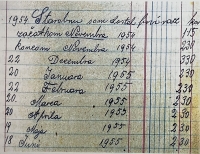 1954 Starobnu som dostal prvi raz
začatkom Novembra 1954 115
Koncom Novembra 1954 230
22 Decembra 1954 230
20 Januara 1955 230
22 Februara 1955 230
20. Marca 1955 230
20 Aprila 1955 230
9 Maja 1955 230
18 Juni 1955 230